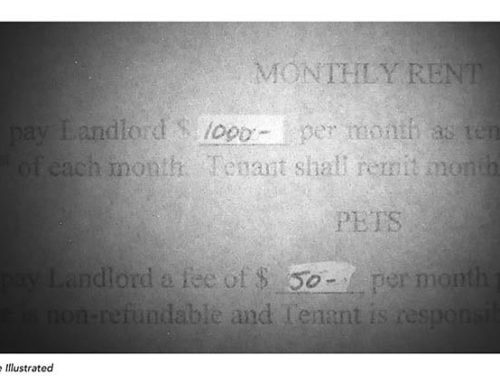 MONTHLY RENT
pay Landlord $ 1000- per month as
of each month. Tenant shall remit month
PETS
pay Landlord a fee of $ 50- per month
is non-refundable and Tenant is
Illustrated